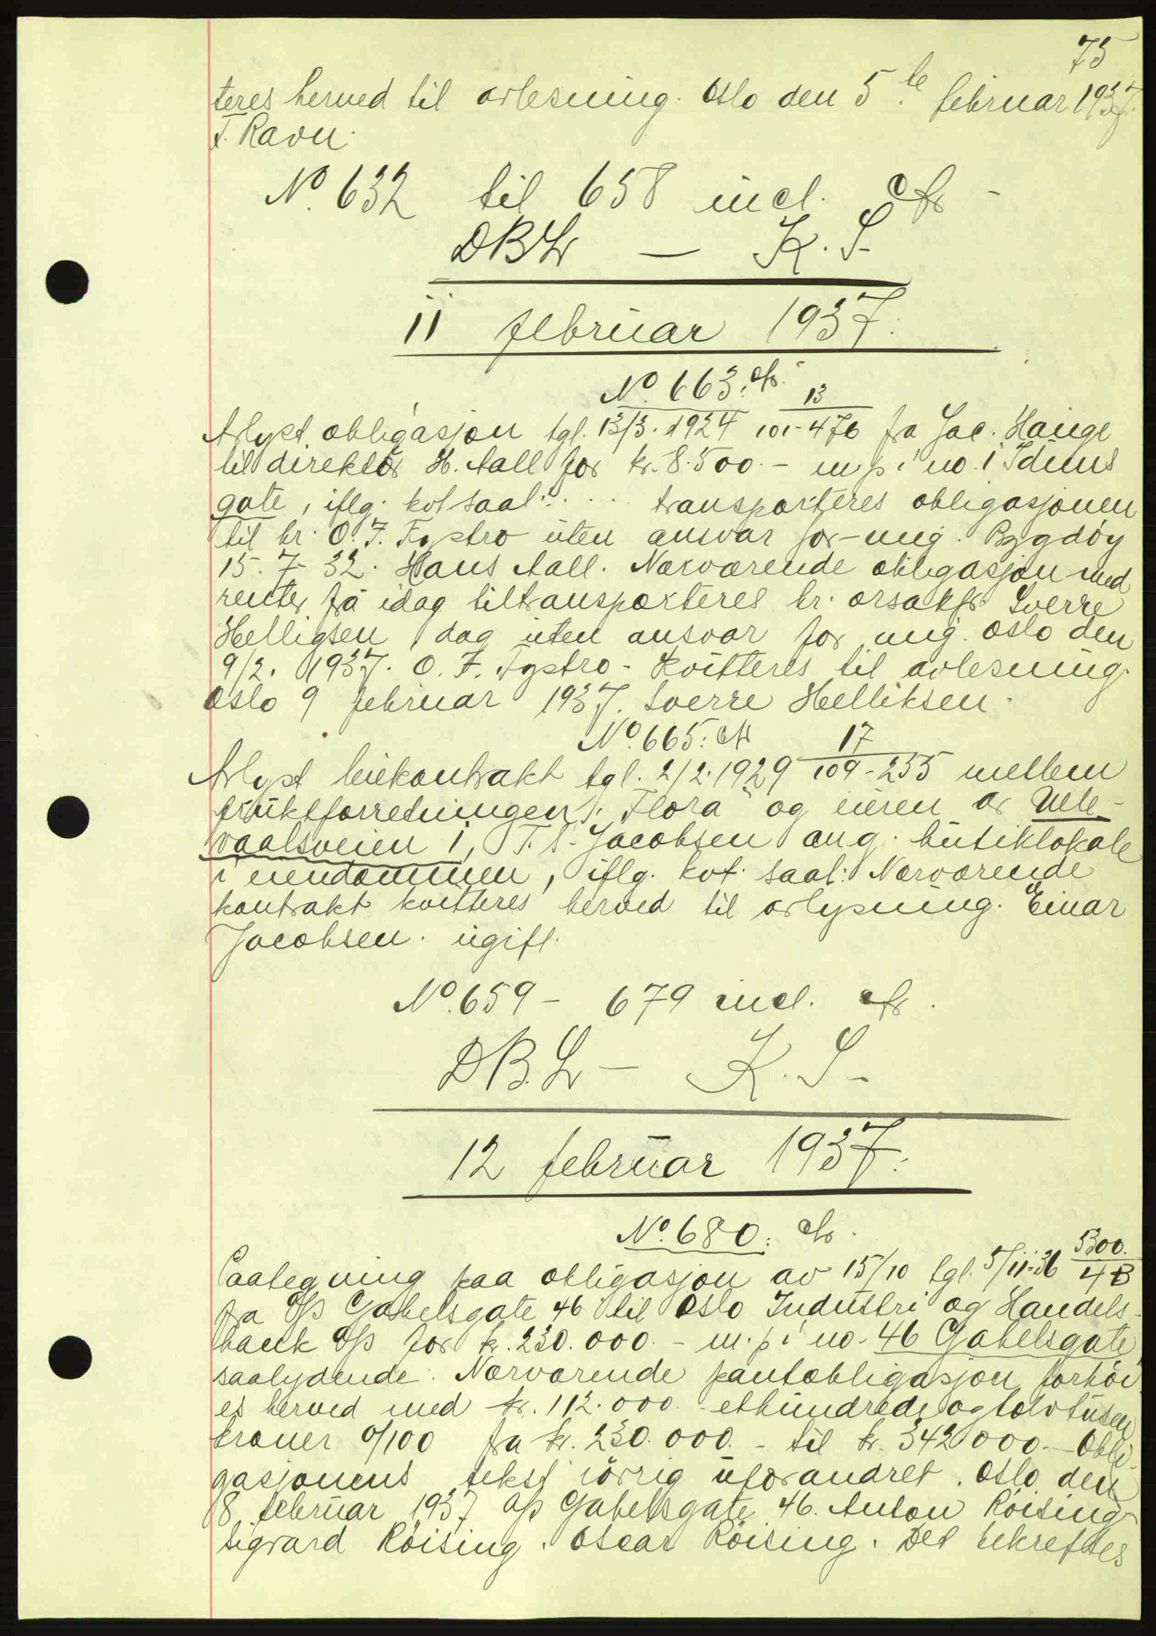 75
teres herved til avlesning. Oslo den 5te februar 1937.
T. Ravn.
No. 632 til 658 incl. cfr -
DBLr — K. S.
11 februar 1937.
No. 663. cfr.
Avlyst obligasjon tgl. 13/3. 1924 13/101-476 fra Jac. Hauge
til direktör H. Aall for kr. 8.500.- m. p. i no. 1 Iduns
gate, iflg. kvt saal: . . . . transporteres obligasjonen
til hr. O. F. Fystro uten ansvar for mig. Bygdöy
15. 7 32. Hans Aall. Nærværende obligasjon med
renter fra idag tiltransporteres hr. orsakfr. Sverre
Helligsen, dag uten ansvar for mig. Oslo den
9/2. 1937. O. F. Fystro - Kvitteres til avlesning.
Oslo 9 februar 1937. Sverre Helliksen.
No. 665: cfr
Avlyst leiekontrakt tgl. 2/2. 1929 17/109-255 mellem
fruktforretningen "Flora" og eieren av Ulle-
vaalsveien 1, T. S. Jacobsen ang. butiklokale
i eiendommen, iflg. kvt. saal: Nærværende
kontrakt kvitteres herved til avlysning. Einar
Jacobsen. ugift.
No. 659 - 679 incl. cfr.
DBLr — K. S.
12 februar 1937.
No. 680: cfr.
Paategning paa obligasjon av 15/10 tgl. 5/11-36 5300./4B
fra A/S Gabelsgate 46 til Oslo Industri og Handels-
bank A/S for kr. 230.000.- m. p. i no. 46 Gabelsgate,
saalydende: Nærværende pantobligasjon forhöi
es herved med kr. 112.000 - ethundredeogtolvtusen
kroner 0/100 fra kr. 230.000.- til kr. 342000.- Obli-
gasjonens tekst iörrig uforandret. Oslo den
8 februar 1937 A/S Gabelsgate 46. Anton Röising
Sigvard Röising. Oscar Röising. Det bekreftes